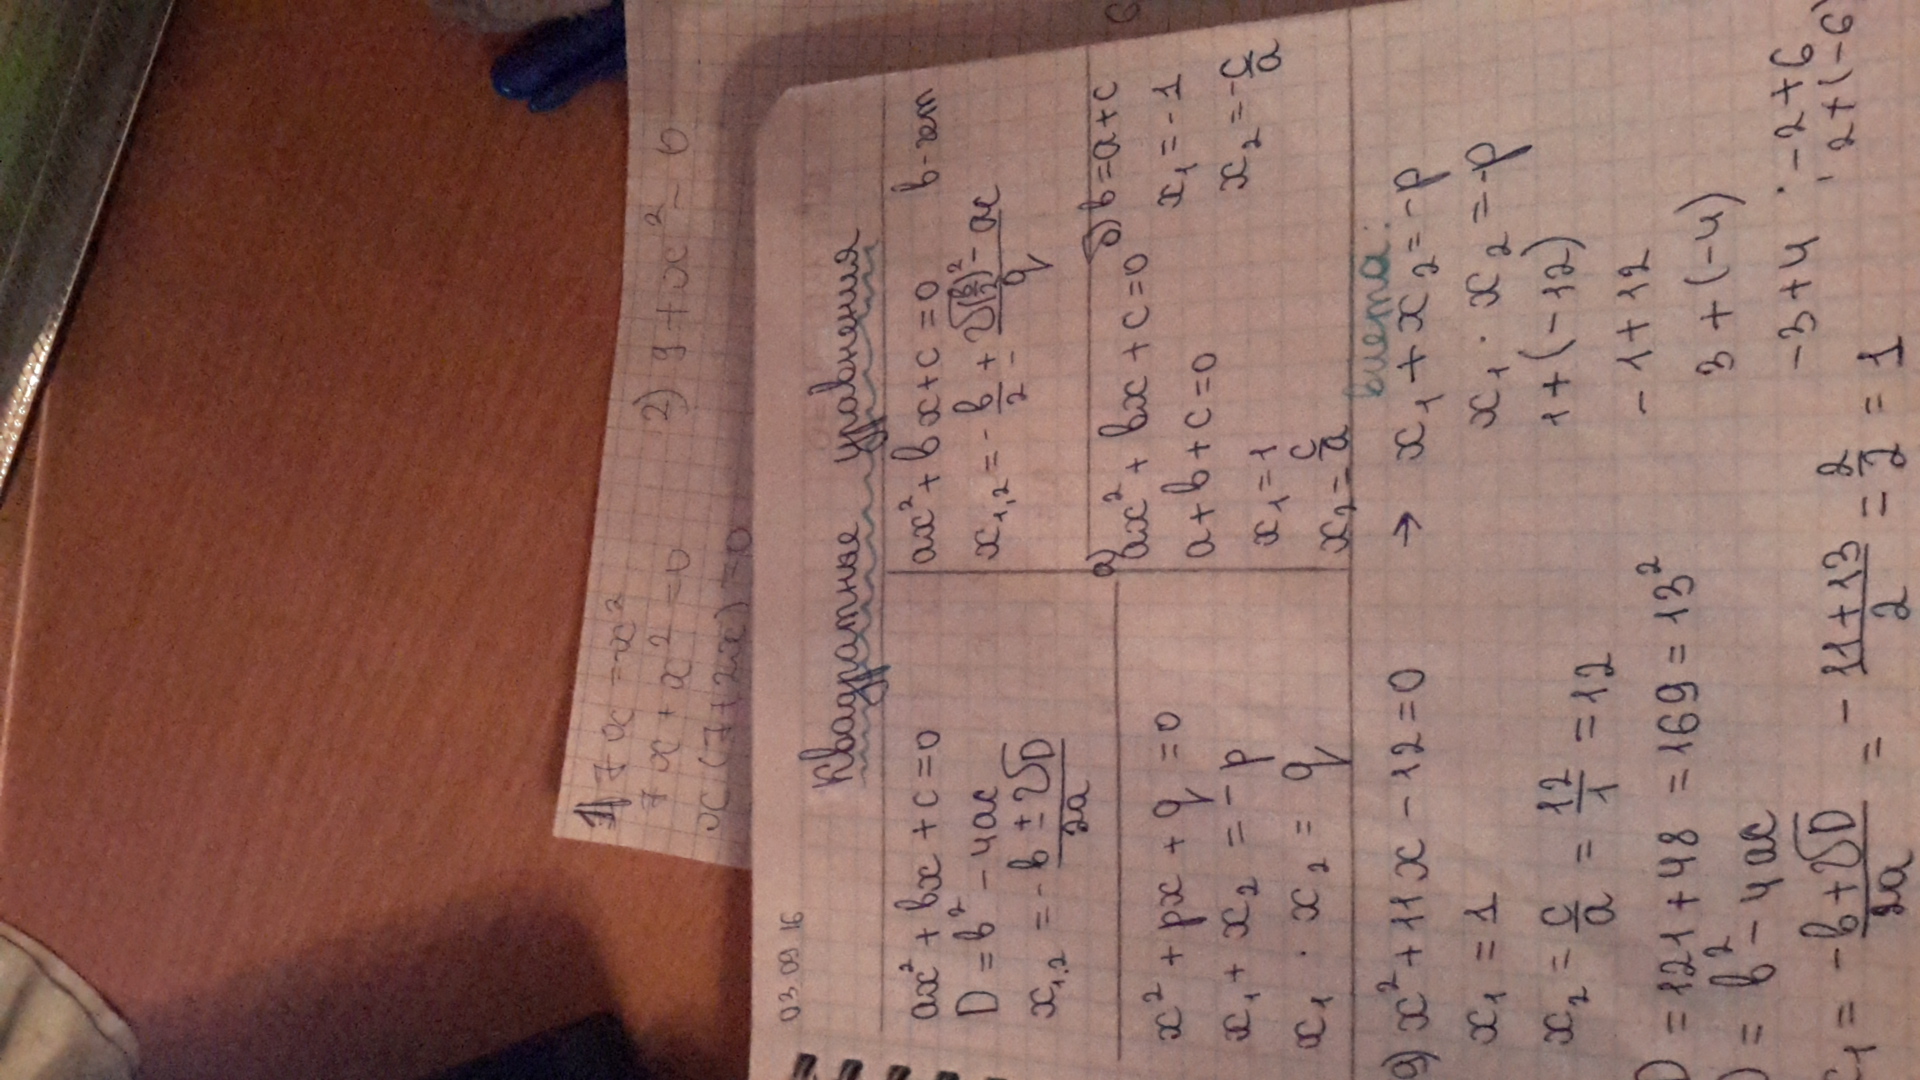 1) 7x = x²
7x + x² = 0
x(7+2x)=0
2) 9 + x² - 6
03 09 16
Квадратные уравнения
ax² + bx + c = 0
D = b² - 4ac
x₁,₂ = -b ± √D / 2a
ax² + bx + c = 0 b-чет
x₁,₂ = - b/2 ± √(b/2)² - ac / a
x² + px + q = 0
x₁ + x₂ = - p
x₁ · x₂ = q
а) ax² + bx + c = 0
a + b + c = 0
x₁ = 1
x₂ = c/a
б) b = a + c
x₁ = - 1
x₂ = - c/a
9) x² + 11x - 12 = 0
x₁ = 1
x₂ = c/a = 12/1 = 12
D = 121 + 48 = 169 = 13²
D = b² - 4ac
x₁ = -b + √D / 2a = - 11 + 13 / 2 = 2/2 = 1
виета:
→ x₁ + x₂ = - p
x₁ · x₂ = -p
1 + (-12)
- 1 + 12
3 + (-4)
-3 + 4 ; -2 + 6
; 2 + (-6)